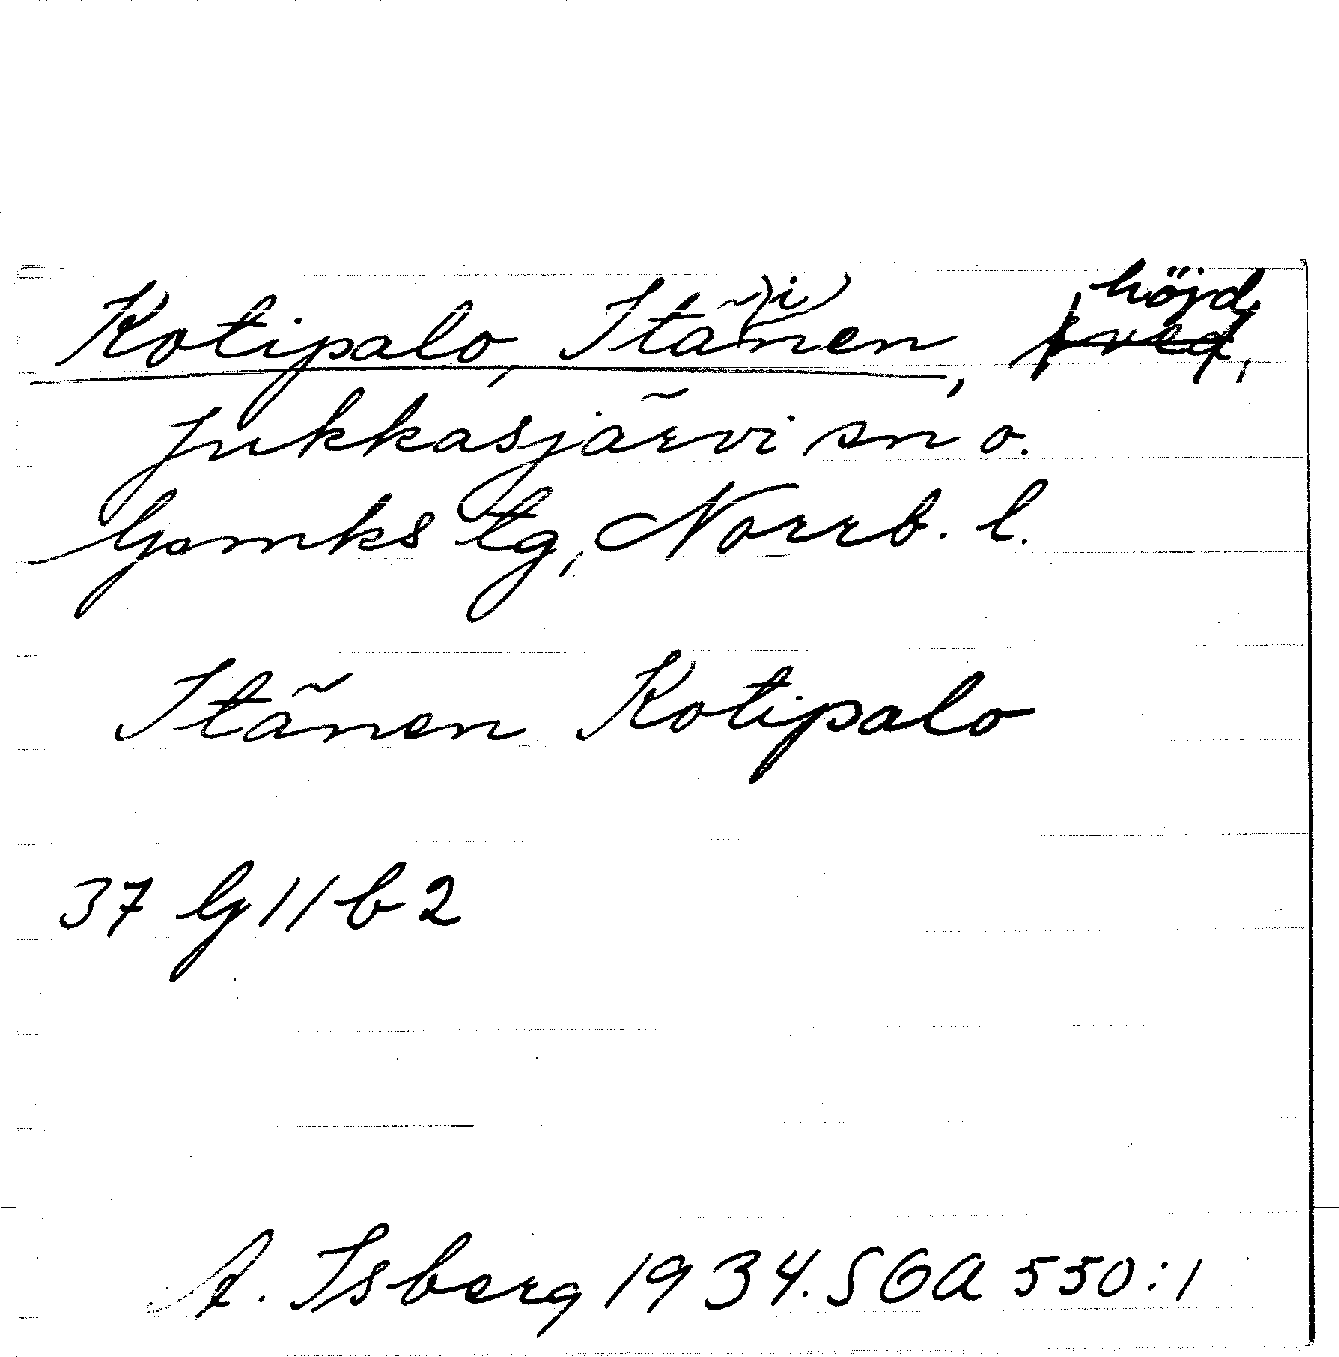 Kotipalo, Itä(i)nen, höjd,
Jukkasjärvi sn o.
lgsmks tg, Norrb. l.
Itänen Kotipalo
37 lg 11 b 2
A. Isberg 1934. SOA 550:1